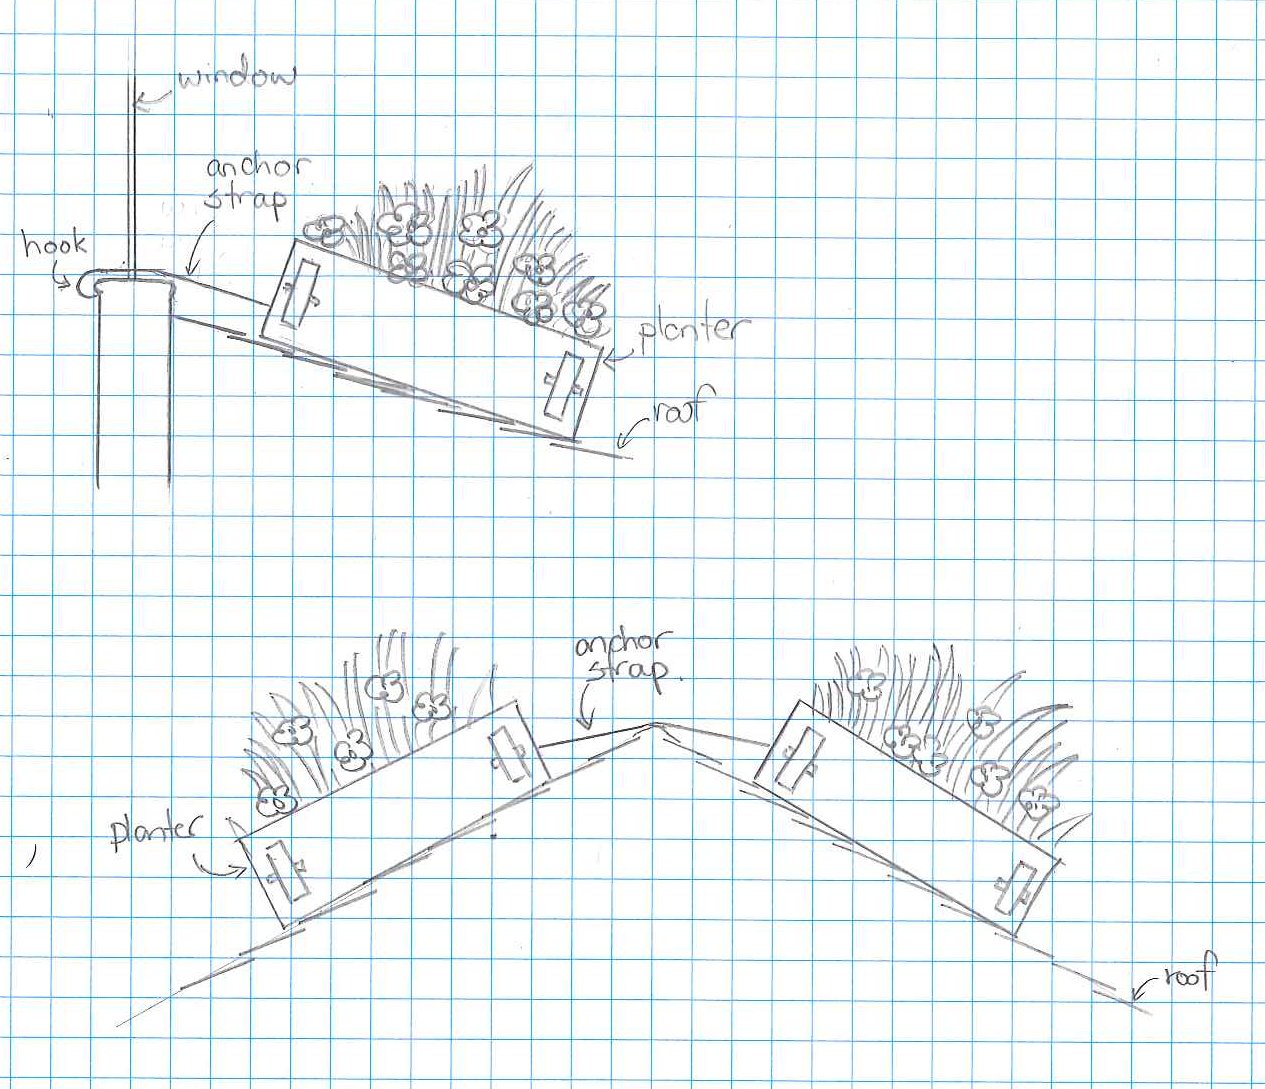 window
anchor
strap
hook
planter
roof
anchor
strap.
planter
roof